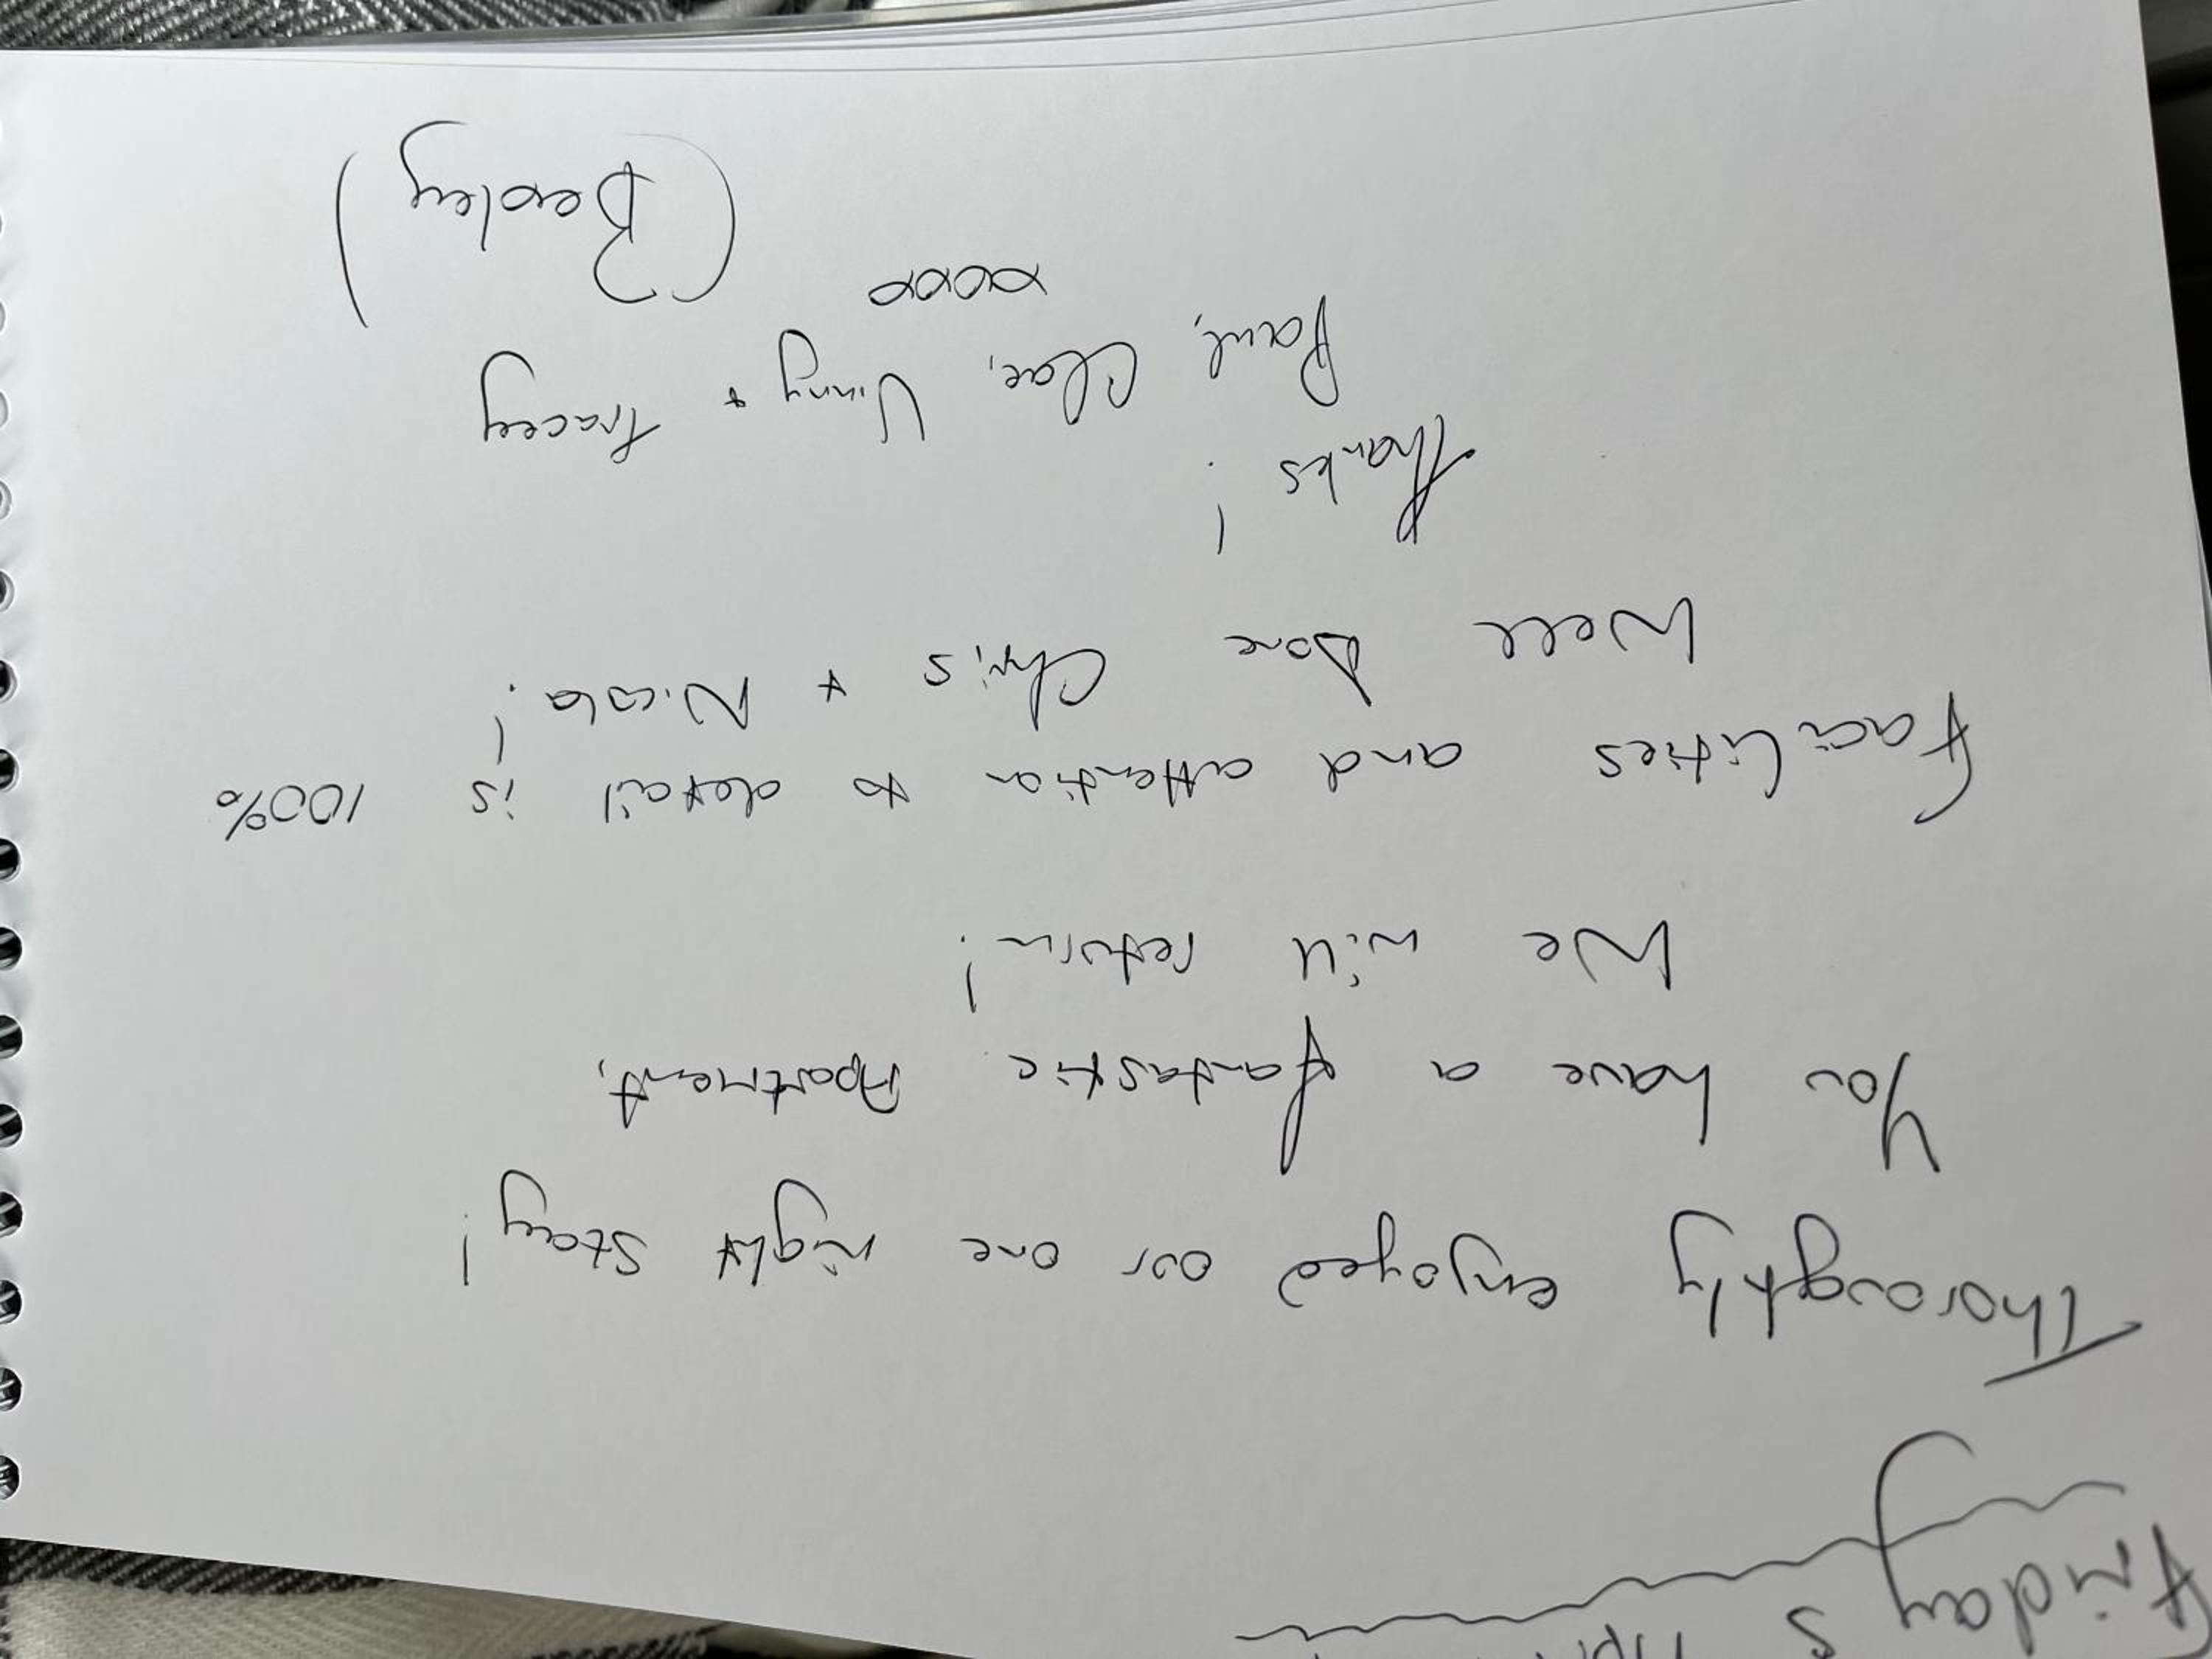 Friday 5 April
Thoroughly enjoyed our one night stay!
You have a fantastic Apartment,
We will return!
Facilities and attention to detail is 100%
Well Done Chris + Nicola!
Thanks!
Paul, Clare, Vinny + Tracey
xxxx
(Bewdley)